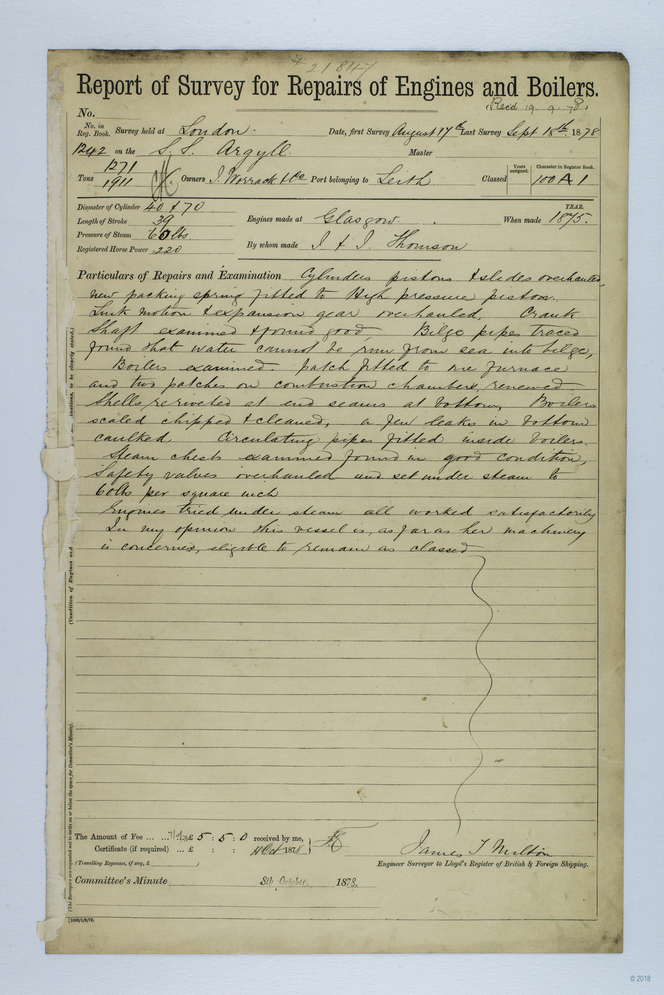 # 21847
Report of Survey for Repairs of Engines and Boilers.
(Recd 19. 9. 78)
No.
No. in Reg. Book. Survey held at London. Date, first Survey August 17th Last Survey Sept 18th 1878
1242 on the S.S. Argyll. Master
Tons 1271 1911 Owners J. Warrack & Co Port belonging to Leith Classed Years assigned. Character in Register Book. 100 A 1
Diameter of Cylinder 40 & 70
Length of Stroke 39
Pressure of Steam 60 lbs
Registered Horse Power 220
Engines made at Glasgow. When made YEAR. 1875.
By whom made J & J. Thomson
Particulars of Repairs and Examination Cylinders pistons & slides overhauled,
new packing spring fitted to High pressure piston.
Link motion & expansion gear overhauled, Crank
Shaft examined & found good, Bilge pipes traced
found that water cannot be run from sea into bilge,
Boilers examined. patch fitted to one furnace
and two patches on combustion chambers, renewed.
Shells, reriveted at end seams at bottom, Boilers
scaled chipped & cleaned, a few leaks in bottom
caulked Circulating pipes fitted inside boilers.
Steam chests examined found in good condition,
Safety valves overhauled and set under steam to
60 lbs per square inch
Engines tried under steam all worked satisfactorily
In my opinion this vessel is, as far as her machinery
is concerned, eligible to remain as classed
(Condition of Engines and
locations, to be clearly stated.)
(The Surveyors are requested not to write on or below the space for Committee's Minute).
The Amount of Fee ... ... £ 5 : 5 : 0 received by me,
Certificate (if required) ... £ : : 4 Oct 1878
(Travelling Expenses, if any, £ )
James T Milton
Engineer Surveyor to Lloyd's Register of British & Foreign Shipping.
Committee's Minute 8th October 1878.
© 2018